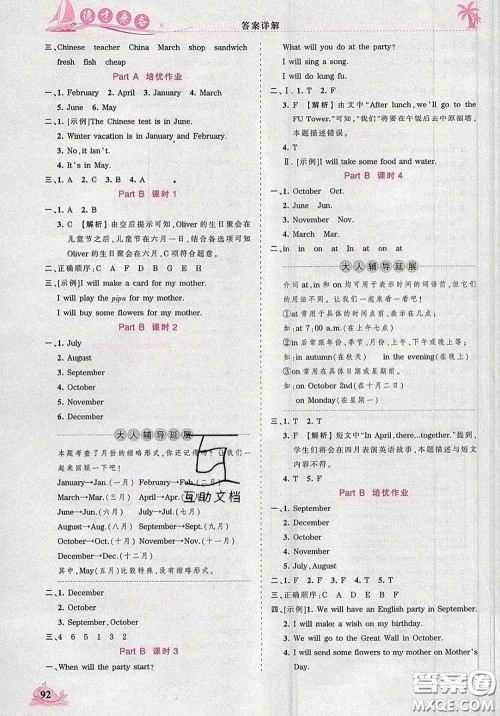 优才来备
答案详解
三、Chinese teacher China March shop sandwich
fresh fish cheap
Part A 培优作业
一、1. February 2. April 3. January 4. March
5. June 6. May
二、1. [示例]The Chinese test is in June.
2. Winter vacation is in January and February.
3. No, it isn't.
4. It's in May.
三、1. A 2. A 3. B 4. B
Part B 课时 1
一、1. B 2. A
3. C [解析] 由空后提示可知, Oliver 的生日聚会在
儿童节之后, 儿童节在六月一日, 所以 Oliver
的生日聚会在六月。C 选项符合题意。
二、正确顺序: C A F D B G E
三、[示例]I will make a card for my mother.
I will play the pipa for my mother.
I will buy some flowers for my mother.
Part B 课时 2
一、1. July
2. August
3. September
4. October
5. November
6. December
大人辅导延展
本题考查了月份的缩略形式, 你还记得吗? 让我们一
起来回顾一下吧!
January→Jan. (一月) February→Feb. (二月)
March→Mar. (三月) April→Apr. (四月)
June→Jun. (六月) July→Jul. (七月)
August→Aug. (八月) September→Sept. (九月)
October→Oct. (十月) November→Nov. (十一月)
December→Dec. (十二月)
其中, May(五月)比较特殊, 没有缩略形式。
二、1. December
2. October
3. September, October
三、4 6 5 1 3 2
Part B 课时 3
一、When will the party start?
92
What will you do at the party?
Will you have any food?
二、Ⅰ. 1. T 2. F
3. F [解析] 由文中“After lunch, we'll go to the
FU Tower.”可知: 我们将要在午饭后去中原福塔,
本题描述错误。
4. T
Ⅱ. [示例]I will take some food and water.
Part B 课时 4
一、1. October Oct.
2. June Jun.
3. November Nov.
4. March Mar.
二、in in on at In at on at
大人辅导延展
介词 at, in 与 on 均可用于表示时间的词语前, 但它们
的用法不同。让我们一起来看一下吧!
①at 常用于具体的时间点前, 表示“在……”。
如: at 7:00 a.m. (在上午七点)
②in 常用于年份、季节、月份、上午、下午或晚上等前。
如: in autumn(在秋天) in the evening(在晚上)
③on 常用于具体日期或星期前。
如: on October 2nd(在十月二日)
on Monday(在星期一)
三、1. T 2. T
3. F [解析] 短文中“In April, there...together.”提到,
学生们将会在四月表演英语故事, 本题描述与短文
内容不符。
4. T 5. F
Part B 培优作业
一、1. September
2. December
3. November
4. October
5. July, August
二、1. F 2. F 3. T 4. T 5. T
三、正确顺序: C A D E B F
四、[示例]1. We will have an English party in September.
2. I will make a wish on my birthday.
3. We will go to the Great Wall in October.
4. I will send flowers to my mother on Mother's
Day.
互助文档
答案圈
MXQE.COM